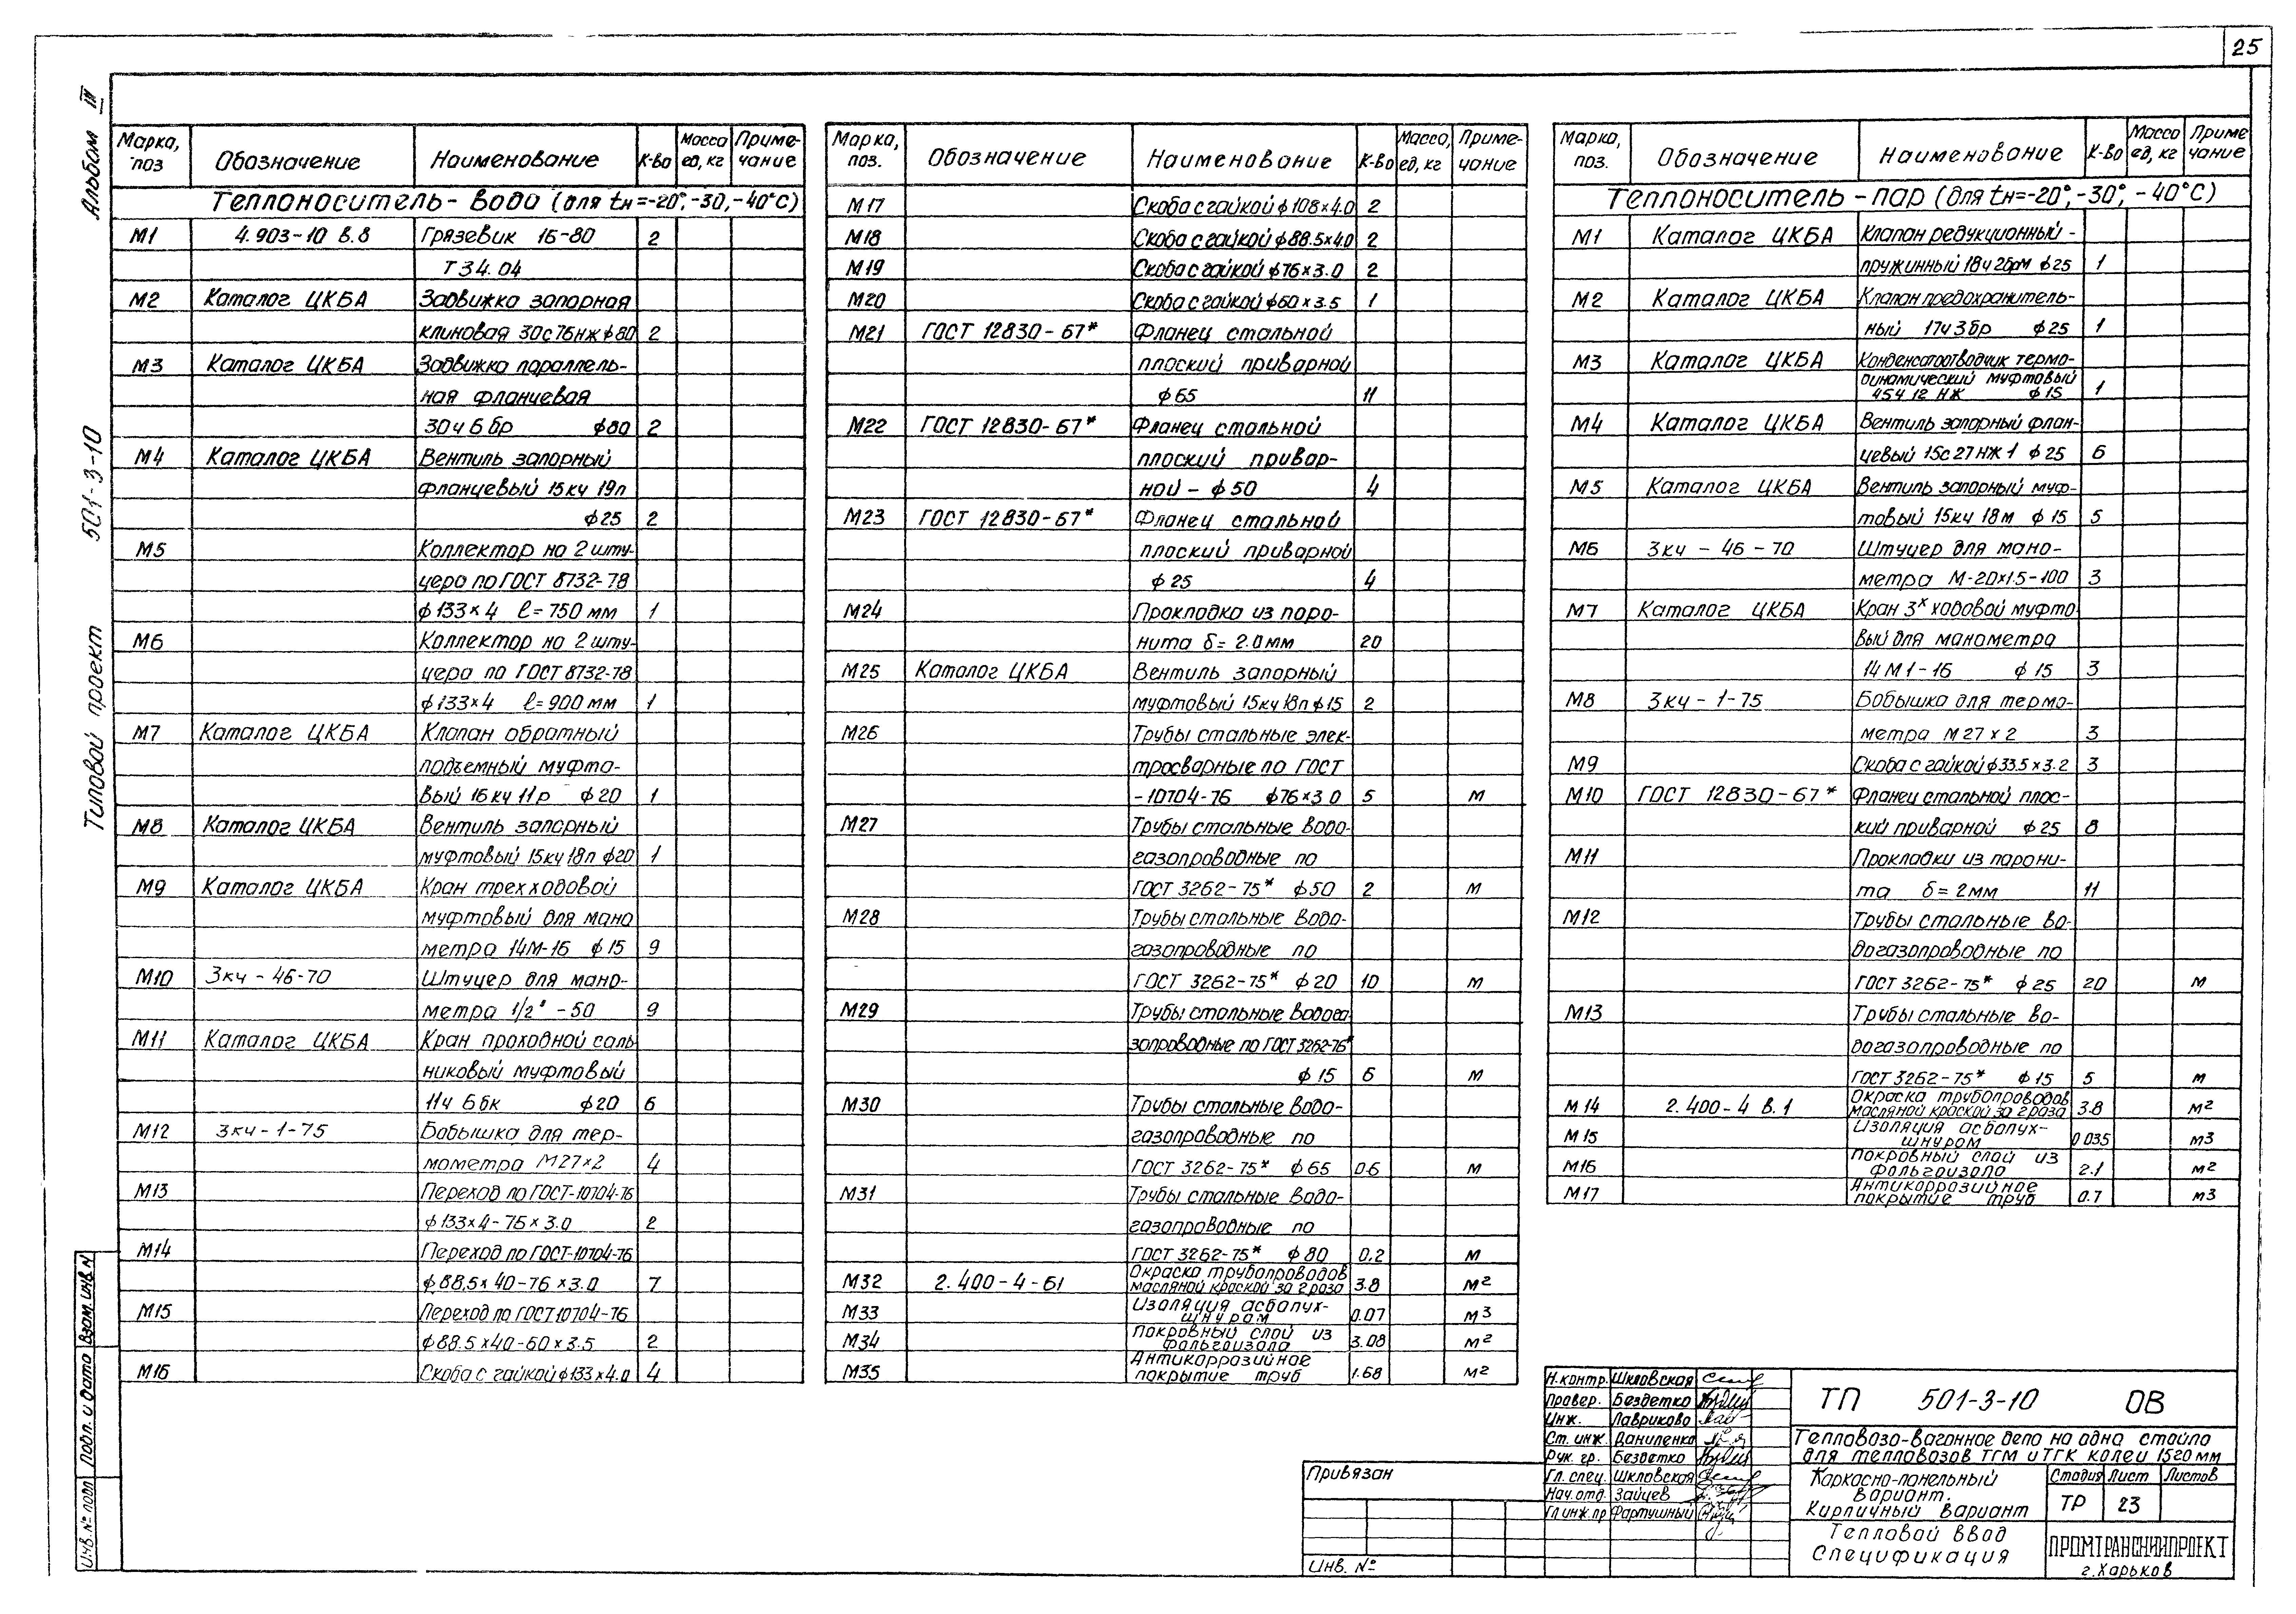 25
Альбом III
Типовой проект 501-3-10
Марка, поз Обозначение Наименование К-во Масса ед, кг Примечание
Теплоноситель - вода (для tн=-20°, -30, -40°С)
М1 4.903-10 в.8 Грязевик 16-80 2
Т34.04
М2 Каталог ЦКБА Задвижка запорная
клиновая 30с76нж ф80 2
М3 Каталог ЦКБА Задвижка параллель-
ная фланцевая
30ч6бр ф80 2
М4 Каталог ЦКБА Вентиль запорный
фланцевый 15кч 19п
ф25 2
М5 Коллектор на 2 шту-
цера по ГОСТ 8732-78
ф133×4 ℓ=750мм 1
М6 Коллектор на 2 шту-
цера по ГОСТ 8732-78
ф133×4 ℓ=900мм 1
М7 Каталог ЦКБА Клапан обратный
подъемный муфто-
вый 16кч 11р ф20 1
М8 Каталог ЦКБА Вентиль запорный
муфтовый 15кч 18п ф20 1
М9 Каталог ЦКБА Кран трехходовой
муфтовый для мано
метра 14М-16 ф15 9
М10 3кч-46-70 Штуцер для мано-
метра 1/2" -50 9
М11 Каталог ЦКБА Кран проходной саль
никовый муфтовый
11ч6бк ф20 6
М12 3кч-1-75 Бобышка для тер-
мометра М27×2 4
М13 Переход по ГОСТ-10704-76
ф133×4-76×3.0 2
М14 Переход по ГОСТ-10704-76
ф88,5×40-76×3.0 7
М15 Переход по ГОСТ 10704-76
ф88.5×40-60×3.5 2
М16 Скоба с гайкой ф133×4.0 4
Марка, поз. Обозначение Наименование К-во Масса, ед, кг Примечание
М17 Скоба с гайкой ф108×4.0 2
М18 Скоба с гайкой ф88.5×4.0 2
М19 Скоба с гайкой ф76×3.0 2
М20 Скоба с гайкой ф60×3.5 1
М21 ГОСТ 12830-67* Фланец стальной
плоский приварной
ф65 11
М22 ГОСТ 12830-67* Фланец стальной
плоский привар-
ной - ф50 4
М23 ГОСТ 12830-67* Фланец стальной
плоский приварной
ф25 4
М24 Прокладка из паро-
нита δ=2.0мм 20
М25 Каталог ЦКБА Вентиль запорный
муфтовый 15кч 18п ф15 2
М26 Трубы стальные элек-
тросварные по ГОСТ
-10704-76 ф76×3.0 5 м
М27 Трубы стальные водо-
газопроводные по
ГОСТ 3262-75* ф50 2 м
М28 Трубы стальные водо-
газопроводные по
ГОСТ 3262-75* ф20 10 м
М29 Трубы стальные водога
зопроводные по ГОСТ 3262-75*
ф15 6 м
М30 Трубы стальные водо-
газопроводные по
ГОСТ 3262-75* ф65 0.6 м
М31 Трубы стальные водо-
газопроводные по
ГОСТ 3262-75* ф80 0.2 м
М32 2.400-4-61 Окраска трубопроводов
масляной краской за 2 раза 3.8 м2
М33 Изоляция асбопух-
шнуром 0.07 м3
М34 Покровный слой из
фольгоизола 3.08 м2
М35 Антикоррозийное
покрытие труб 1.68 м2
Марка, поз. Обозначение Наименование К-во Масса ед, кг Примечание
Теплоноситель - пар (для tн=-20°, -30°, -40°С)
М1 Каталог ЦКБА Клапан редукционный -
пружинный 18ч2брм ф25 1
М2 Каталог ЦКБА Клапан предохранитель-
ный 17ч3бр ф25 1
М3 Каталог ЦКБА Конденсатоотводчик термо-
динамический муфтовый
45ч12нж ф15 1
М4 Каталог ЦКБА Вентиль запорный флан-
цевый 15с27нж1 ф25 6
М5 Каталог ЦКБА Вентиль запорный муф-
товый 15кч 18м ф15 5
М6 3кч-46-70 Штуцер для мано-
метра М-20×1.5-100 3
М7 Каталог ЦКБА Кран 3х ходовой муфто
вый для манометра
14М1-16 ф15 3
М8 3кч-1-75 Бобышка для термо-
метра М27×2 3
М9 Скоба с гайкой ф33.5×3.2 3
М10 ГОСТ 12830-67* Фланец стальной плос-
кий приварной ф25 8
М11 Прокладки из парони-
та δ=2мм 11
М12 Трубы стальные во-
догазопроводные по
ГОСТ 3262-75* ф25 20 м
М13 Трубы стальные во-
догазопроводные по
ГОСТ 3262-75* ф15 5 м
М14 2.400-4 в.1 Окраска трубопроводов
масляной краской за 2 раза 3.8 м2
М15 Изоляция асбопух-
шнуром 0.035 м3
М16 Покровный слой из
фольгоизола 2.1 м2
М17 Антикоррозийное
покрытие труб 0.7 м3
Инв.№ подл Подп. и дата Взам.инв.N
Привязан
Инв. №
Н.контр. Шкловская
Провер. Бездетко
Инж. Лаврикова
Ст. инж. Даниленко
Рук. гр. Бездетко
Гл. спец. Шкловская
Нач.отд. Зайцев
Гл инж.пр Фартушный
ТП 501-3-10 ОВ
Тепловозо-вагонное депо на одно стойло
для тепловозов ТГМ и ТГК колеи 1520мм
Каркасно-панельный
вариант.
Кирпичный вариант
Стадия Лист Листов
ТР 23
Тепловой ввод
Спецификация
ПРОМТРАНСНИИПРОЕКТ
г.Харьков